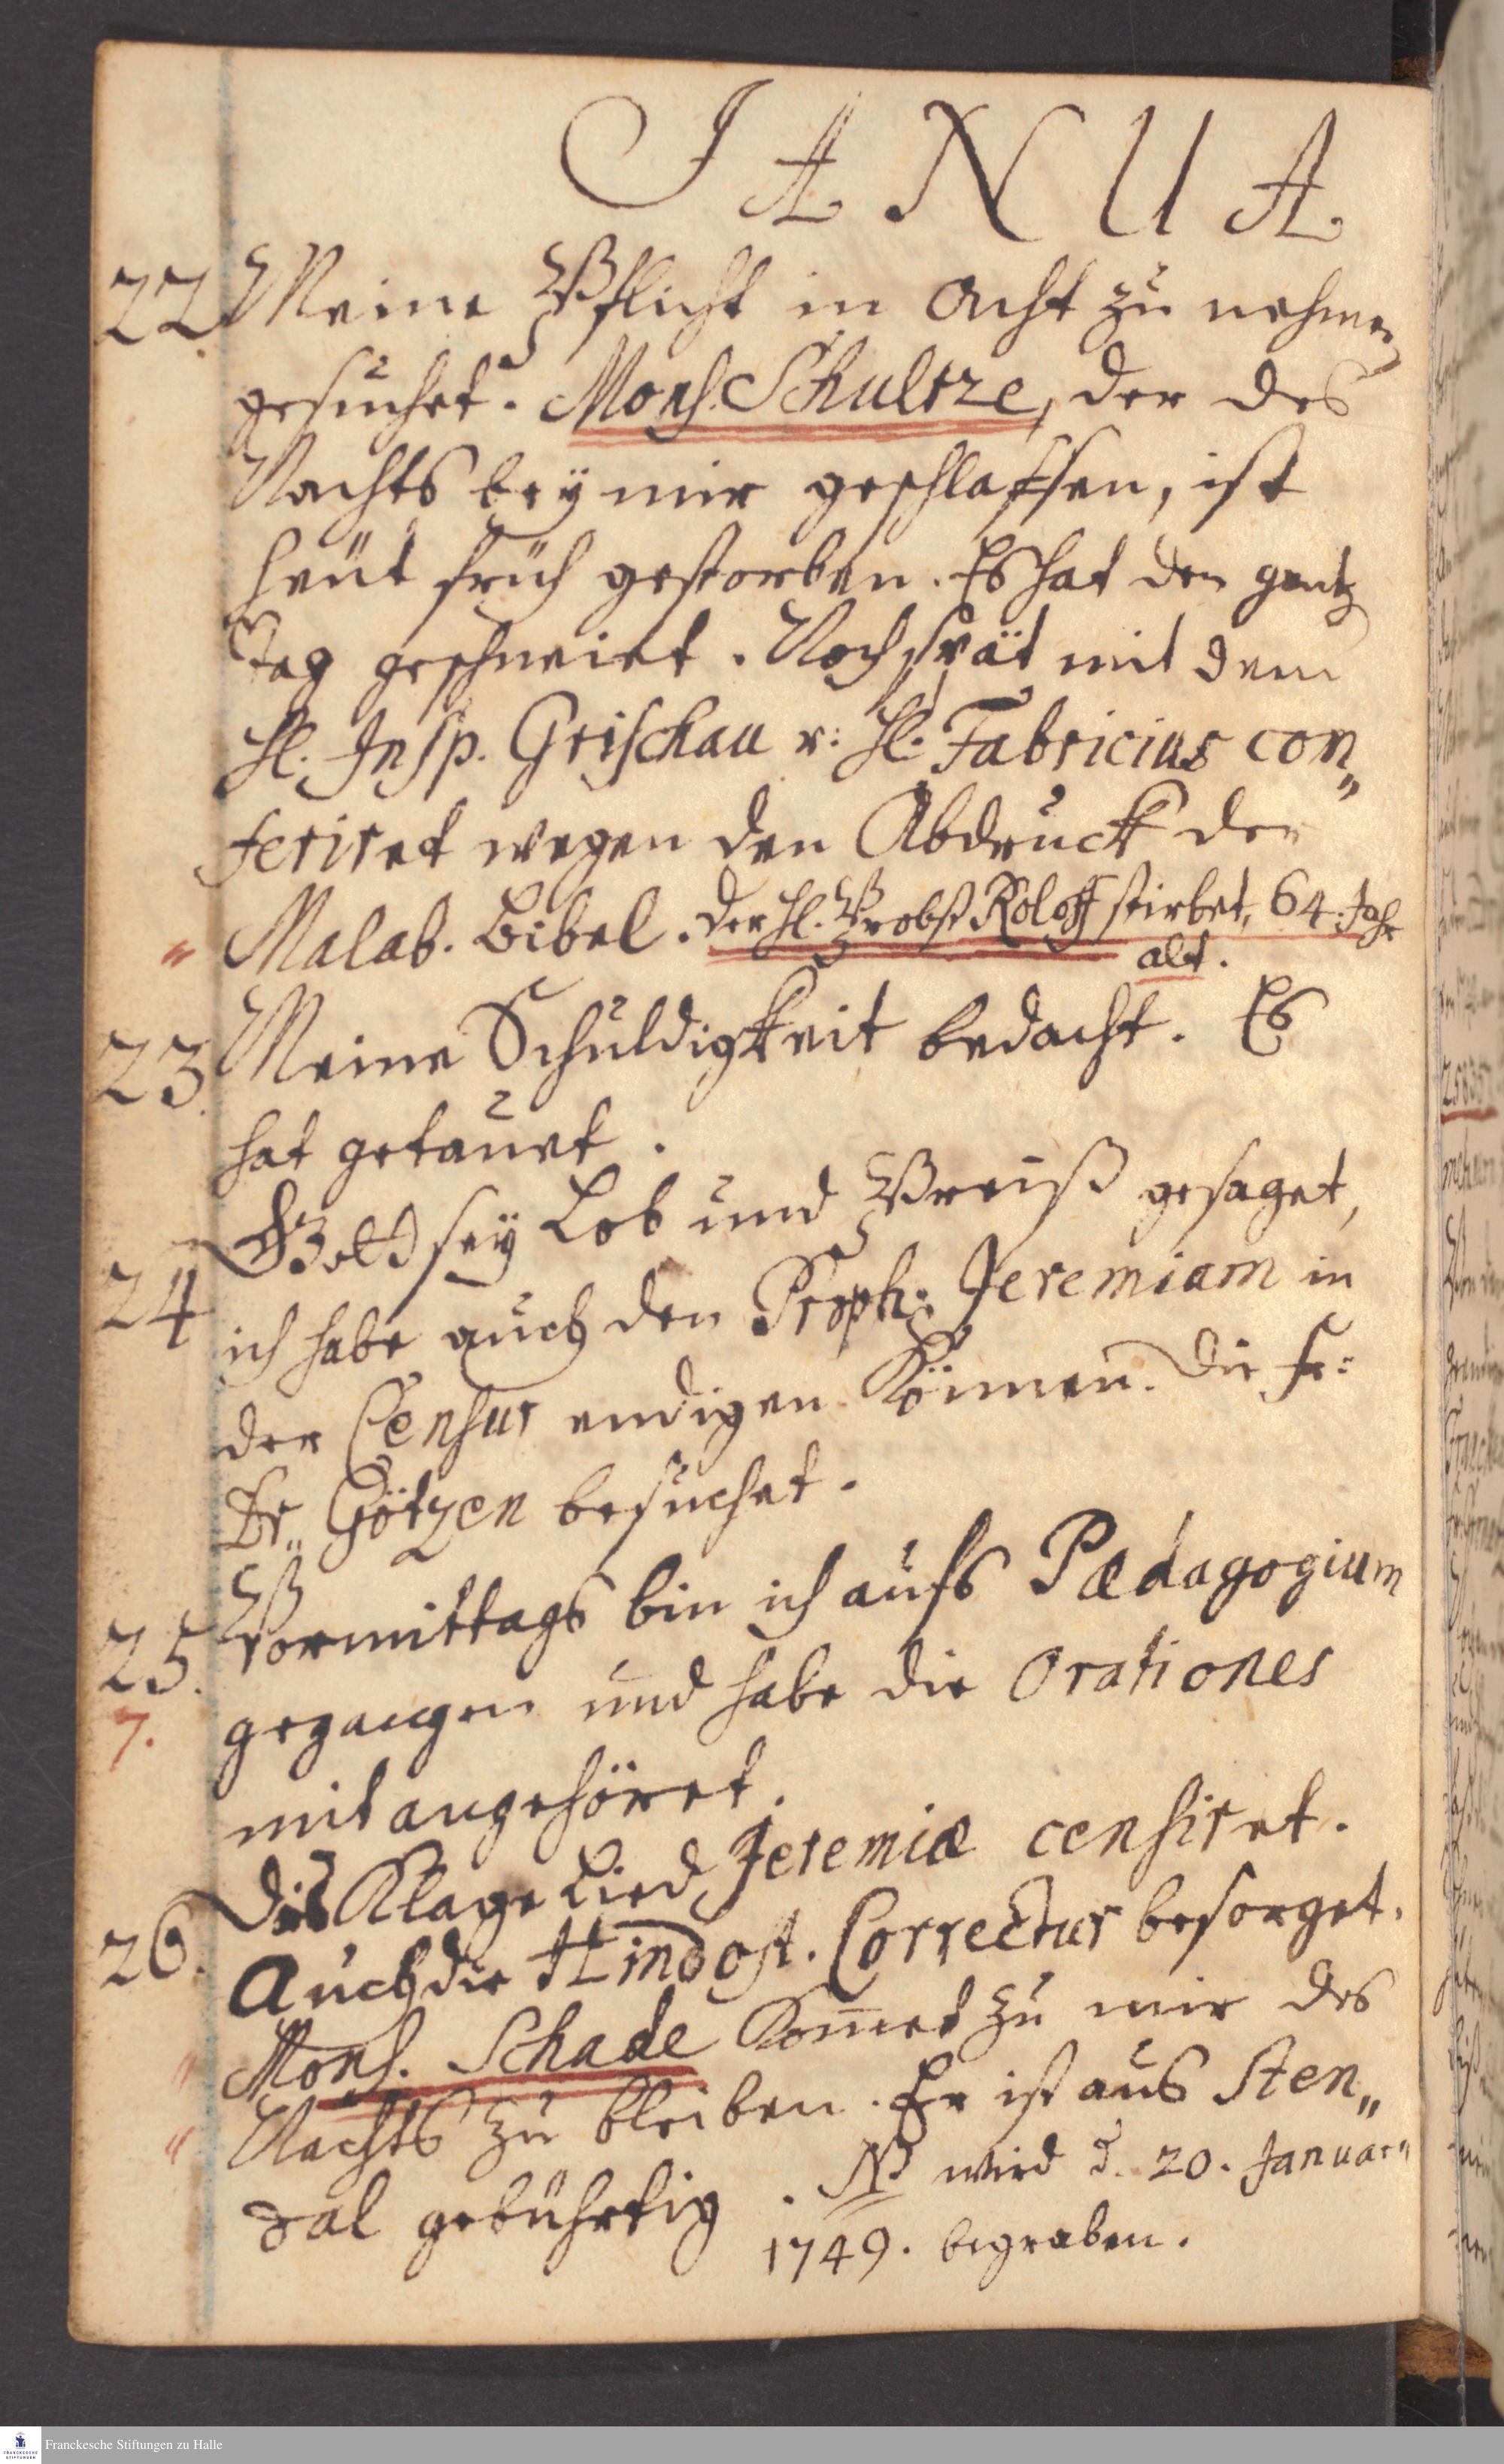 JANUA
22. Meine Pflicht in Acht zu nehmen
gesuchet. Mons. Schultze, der des
Nachts bey mir geschlaffen, ist
heut früh gestorben. Es hat den gantz
Tag geschneiet. Noch spät mit dem
H. Insp. Grischau u: H. Fabricius con„
feriret wegen den Abdruck der
Malab. Bibel. Der H. Probst Roloff stirbet, 64. Jahr
alt.
23. Meine Schuldigkeit bedacht. Es
hat getauet.
24 Gott sey Lob und Preiß gesaget,
ich habe auch den Proph: Jeremiam in
der Censur endigen Können. Die Fr:
Dr„ Götzen besuchet.
25. Vormittags bin ich aufs Pædagogium
7. gegangen und habe die Orationes
mit angehöret.
26. Das Klage Lied Jeremiæ censiret.
Auch die Hindost. Correctur besorget.
Mons. Schade Kom̄et zu mir des
Nachts zu bleiben. Er ist aus Sten„
dal gebührtig. NB wird d. 20. Januar„
1749. begraben.
Franckesche Stiftungen zu Halle